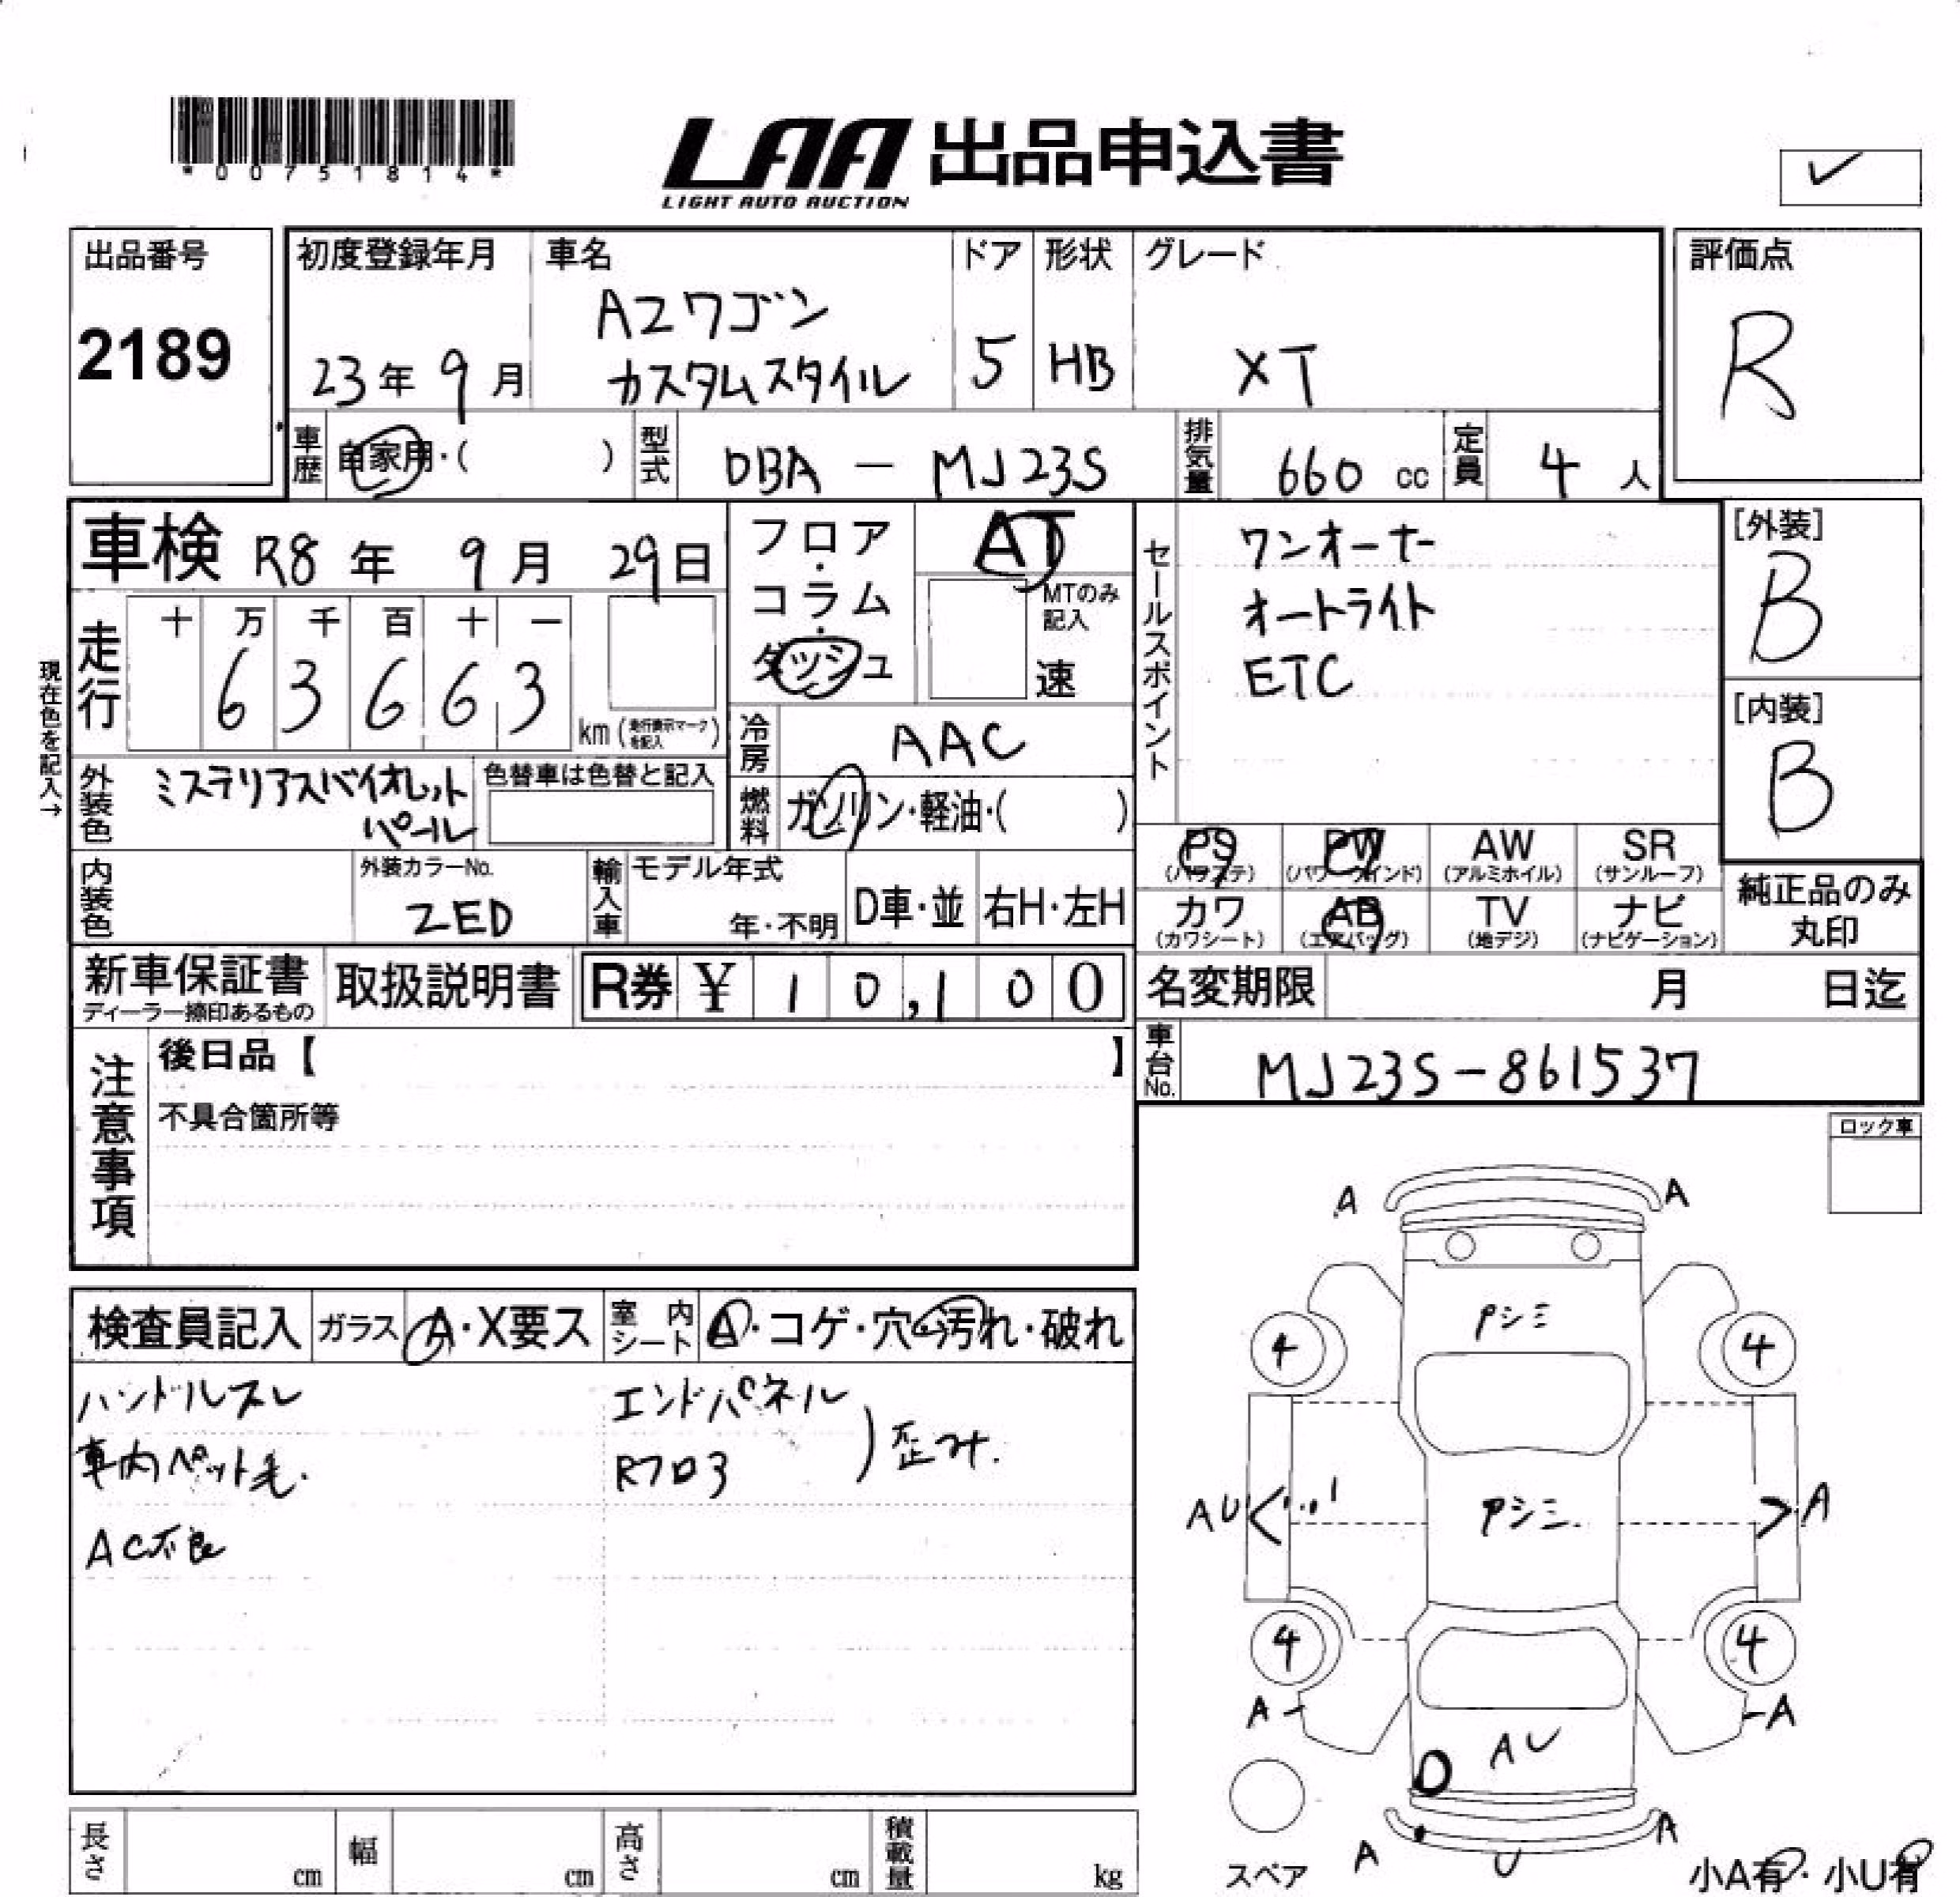 *00751814*
LAA 出品申込書
LIGHT AUTO AUCTION
出品番号
2189
初度登録年月
23年 9月
車名
AZワゴン
カスタムスタイル
ドア
5
形状
HB
グレード
XT
評価点
R
車歴 自家用・( )
型式 DBA - MJ23S
排気量 660 cc
定員 4 人
車検 R8年 9月 29日
現在色を記入→
走行
十 万 千 百 十 一
6 3 6 6 3
km (走行表示マークを記入)
フロア・コラム・ダッシュ
AT
MTのみ記入
速
セールスポイント
ワンオーナー
オートライト
ETC
[外装]
B
[内装]
B
冷房 AAC
燃料 ガソリン・軽油・( )
外装色 ミステリアスバイオレット
パール
色替車は色替と記入
内装色
外装カラーNo.
ZED
輸入車
モデル年式
年・不明
D車・並
右H・左H
PS
(パワステ)
PW
(パワーウインド)
AW
(アルミホイル)
SR
(サンルーフ)
カワ
(カワシート)
AB
(エアバッグ)
TV
(地デジ)
ナビ
(ナビゲーション)
純正品のみ
丸印
新車保証書
ディーラー捺印あるもの
取扱説明書
R券 ¥ 10,100
名変期限 月 日迄
注意事項
後日品【 】
不具合箇所等
車台No. MJ23S-861537
ロック車
検査員記入
ガラス A・X要ス
室内シート A・コゲ・穴・汚れ・破れ
ハンドルスレ
車内ペット毛.
AC不良
エンドパネル
Rフロア
歪み.
A A
Pシミ
4 4
AU A
Pシミ
4 4
A A
AU
A U A
スペア
小A有・小U有
長さ cm
幅 cm
高さ cm
積載量 kg